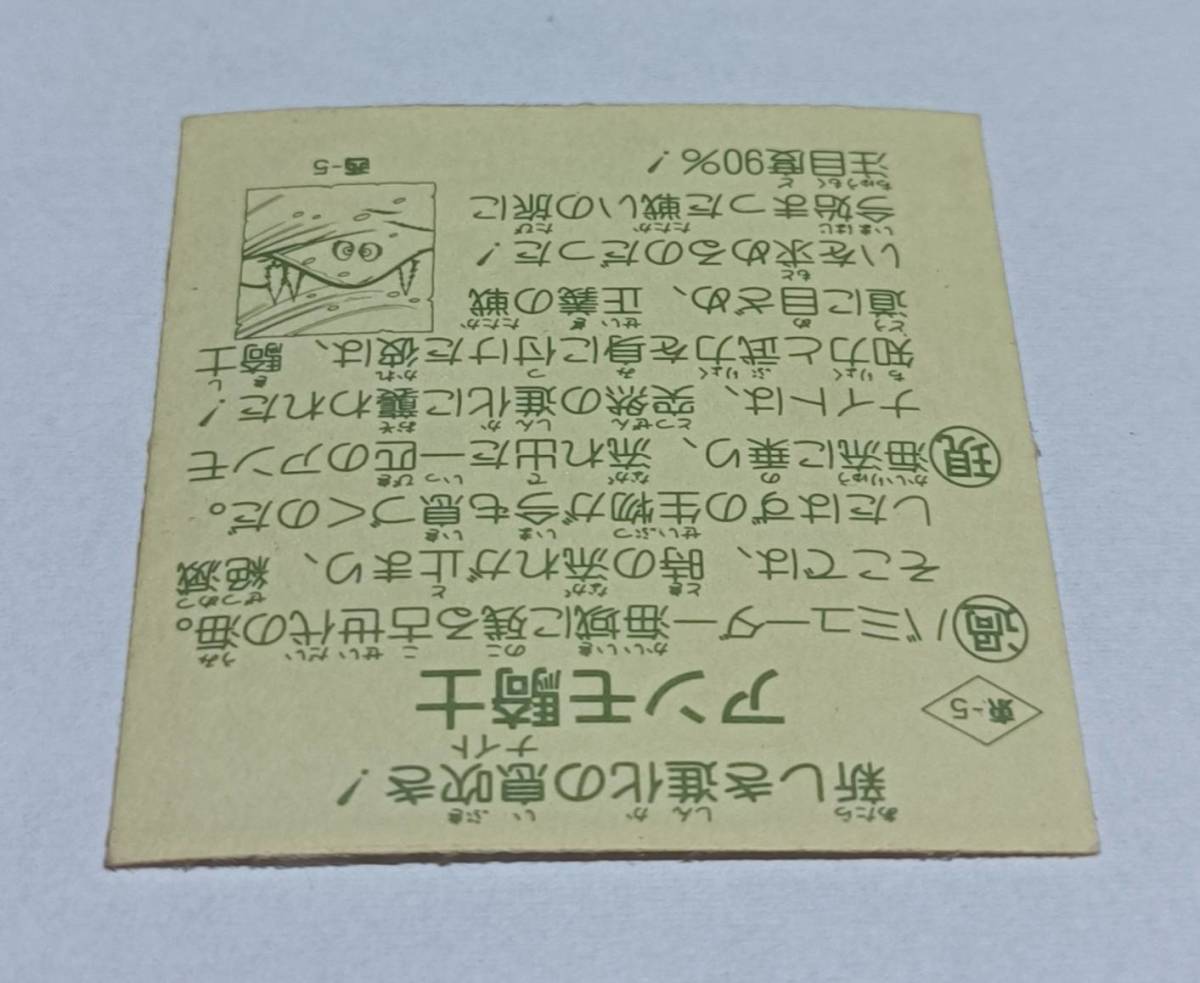 新しき進化の息吹き!
東-5
アンモ騎士
ナイト
過 バミューダー海域に残る古世代の海。
そこでは、時の流れが止まり、絶滅
したはずの生物が今も息づくのだ。
現 海流に乗り、流れ出た一匹のアンモ
ナイトは、突然の進化に襲われた!
知力と武力を身に付けた彼は、騎士
道に目ざめ、正義の戦
いを求めるのだった!
今始まった戦いの旅に
注目度90%!
西-5